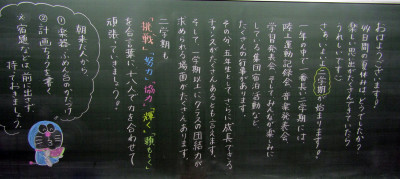 おはようございます!
44日間の夏休みはどうでしたか?
楽しい思い出がたくさんできていたら
うれしいです。
さあ、いよいよ二学期が始まります!
一年の中で一番長い二学期には、
陸上運動記録会、音楽発表会、
学習発表会、そしてみんなが楽しみに
している集団宿泊活動など、
たくさんの行事があります。
その分、五年生として、さらに成長できる
チャンスがたくさんあるとも言えます。
そして、一学期以上にクラスの団結力が
求められる場面がたくさんあります。
二学期も
「挑戦」「努力」「協力」「輝く」「頼もしく」
を合言葉に、十八人で力を合わせて
頑張っていきましょう!
朝きた人から、
①楽器いるか合のかたづけ
②計画 を書く
※宿題などは前に出さず、
持っておきましょう。